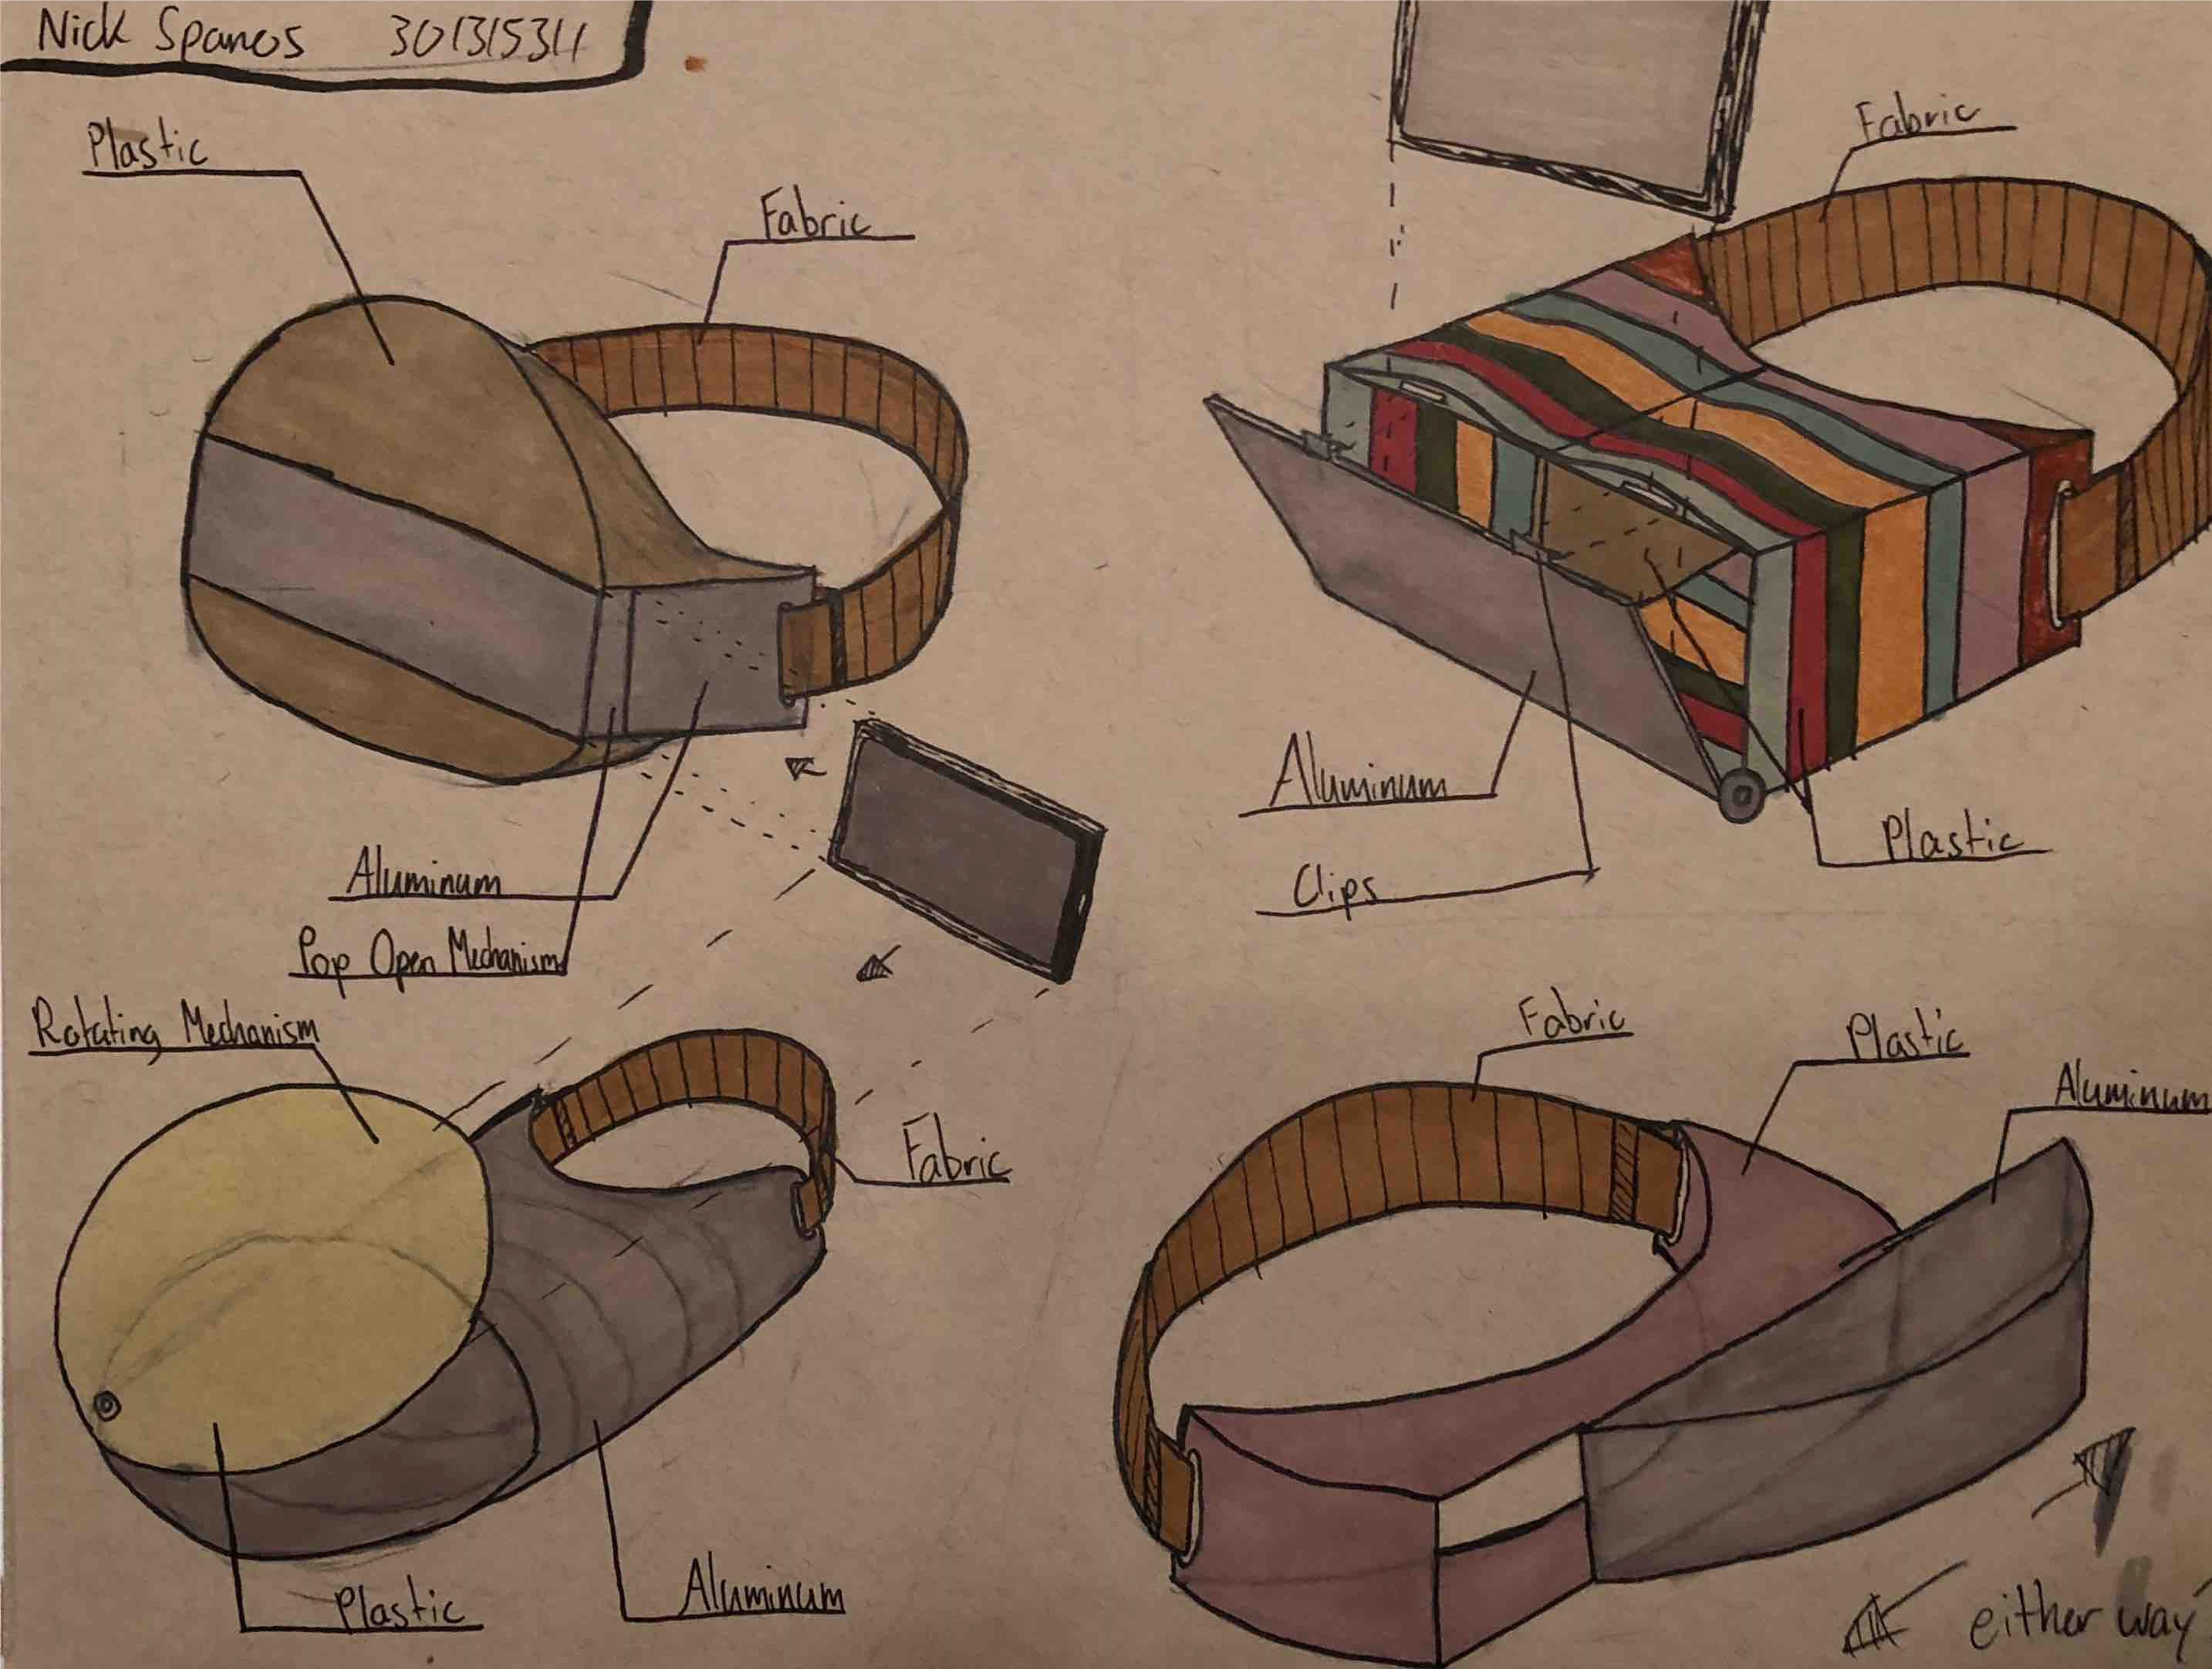 Nick Spanos 301315311
Plastic
Fabric
Aluminum
Pop Open Mechanism
Fabric
Aluminum
Clips
Plastic
Rotating Mechanism
Fabric
Plastic
Aluminum
Fabric
Plastic
Aluminum
either way